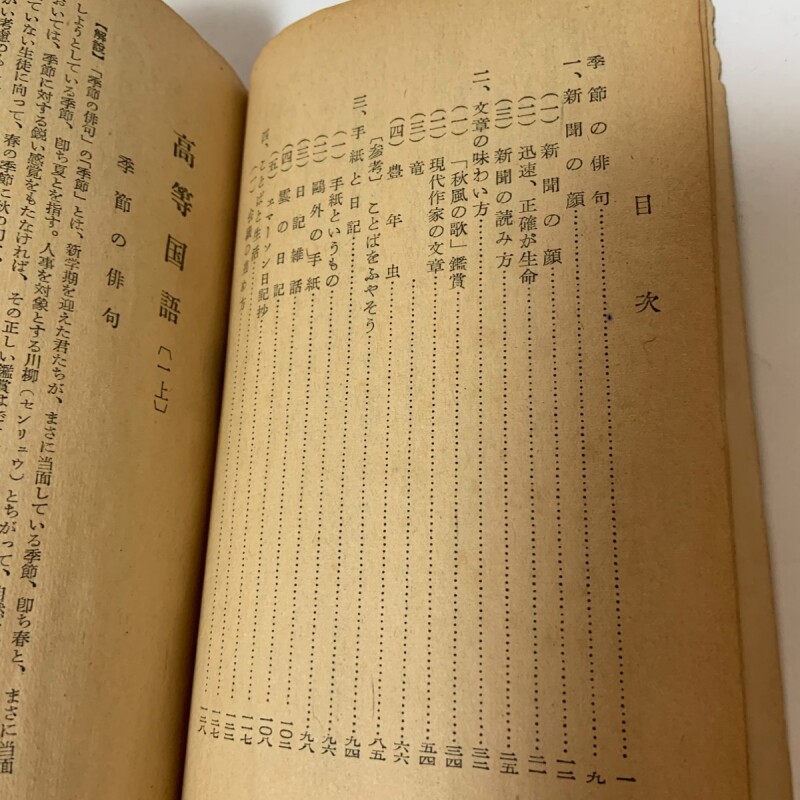 目次
季節の俳句……一
一、新聞の顔……九
(一) 新聞の顔……一二
(二) 迅速、正確が生命……二一
(三) 新聞の読み方……二五
二、文章の味わい方……三二
(一) 「秋風の歌」鑑賞……三四
(二) 現代作家の文章……五四
(三) 竜……六六
(四) 豊年虫……八五
〔参考〕ことばをふやそう……九四
三、手紙と日記……九六
(一) 手紙というもの……九八
(二) 鷗外の手紙……一〇二
(三) 日記雑話……一〇八
(四) 雲の日記……一一七
(五) エマーソン日記抄……一二二
四、ことばと生活……一二七
一二八
高等国語〔一上〕
季節の俳句
【解説】「季節の俳句」の「季節」とは、新学期を迎えた君たちが、まさに当面している季節、即ち春と、まさに当面
しようとしている季節、即ち夏とを指す。人事を対象とする川柳(センリュウ)とちがって、
おいては、季節に対する鋭い感覚をもたなければ、その正しい鑑賞は
ていない生徒に向って、春の季節に秋の句